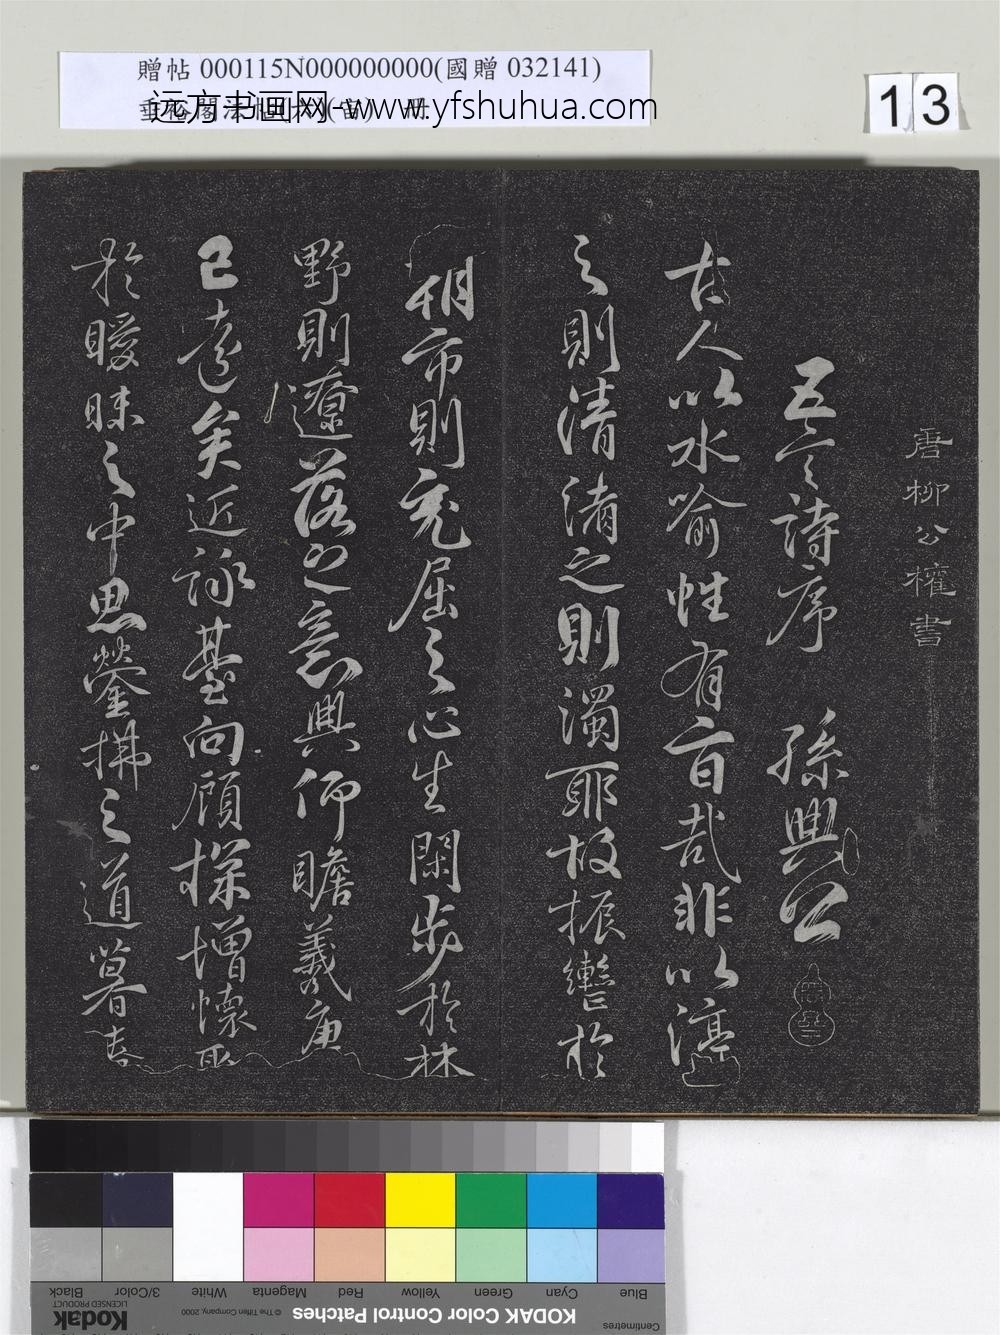 贈帖 000115N000000000(國贈 032141)
远方书画网-www.yfshuhua.com
13
唐柳公權書
五言詩序 孫興公
古人以水喻性有旨哉非以渟
之則清淆之則濁耶故振轡於
朝市則充屈之心生閑步於林
野則遼落之意興仰瞻羲唐
已遠矣近詠臺向顧探增懷所
於曖昧之中思縈拂之道暮春
Blue
Cyan
Green
Yellow
Red
Magenta
White
3/Color
Black
Centimetres
KODAK Color Control Patches
© The Tiffen Company, 2000
Kodak
LICENSED PRODUCT